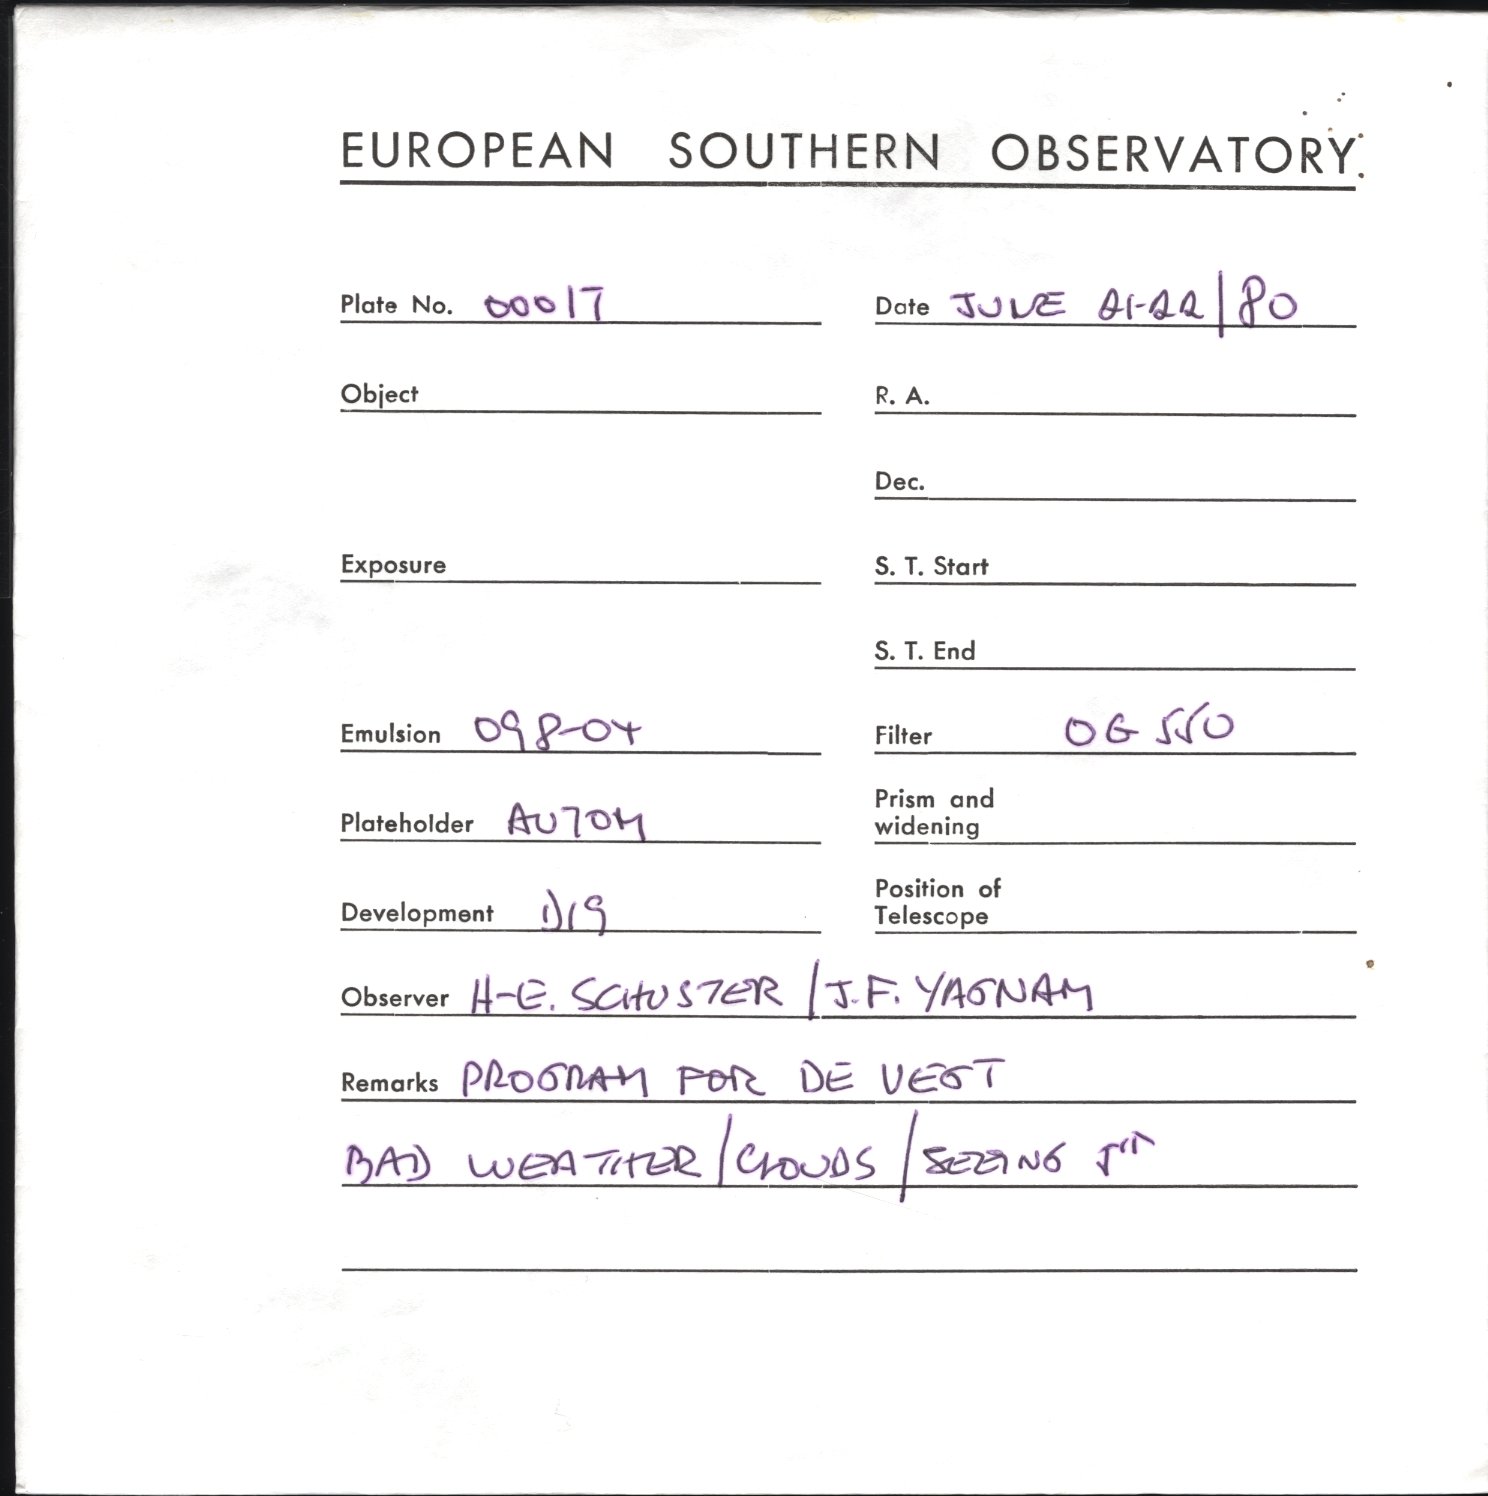 EUROPEAN SOUTHERN OBSERVATORY
Plate No. 00017 Date JUNE 21-22/80
Object R. A.
Dec.
Exposure S. T. Start
S. T. End
Emulsion 098-04 Filter OG 550
Plateholder AUTOM Prism and widening
Development D19 Position of Telescope
Observer H-E. SCHUSTER / J.F. YAGNAM
Remarks PROGRAM FOR DE VEGT
BAD WEATHER / CLOUDS / SEEING 5"